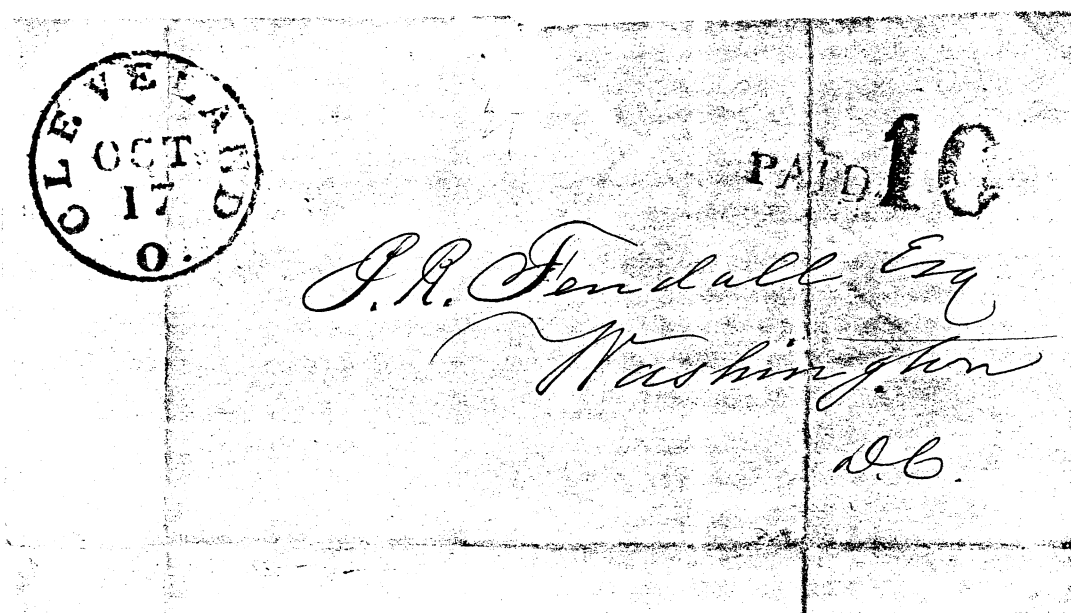 CLEVELAND
OCT
17
O.
PAID 10
P. R. Fendall Esq
Washington
D.C.